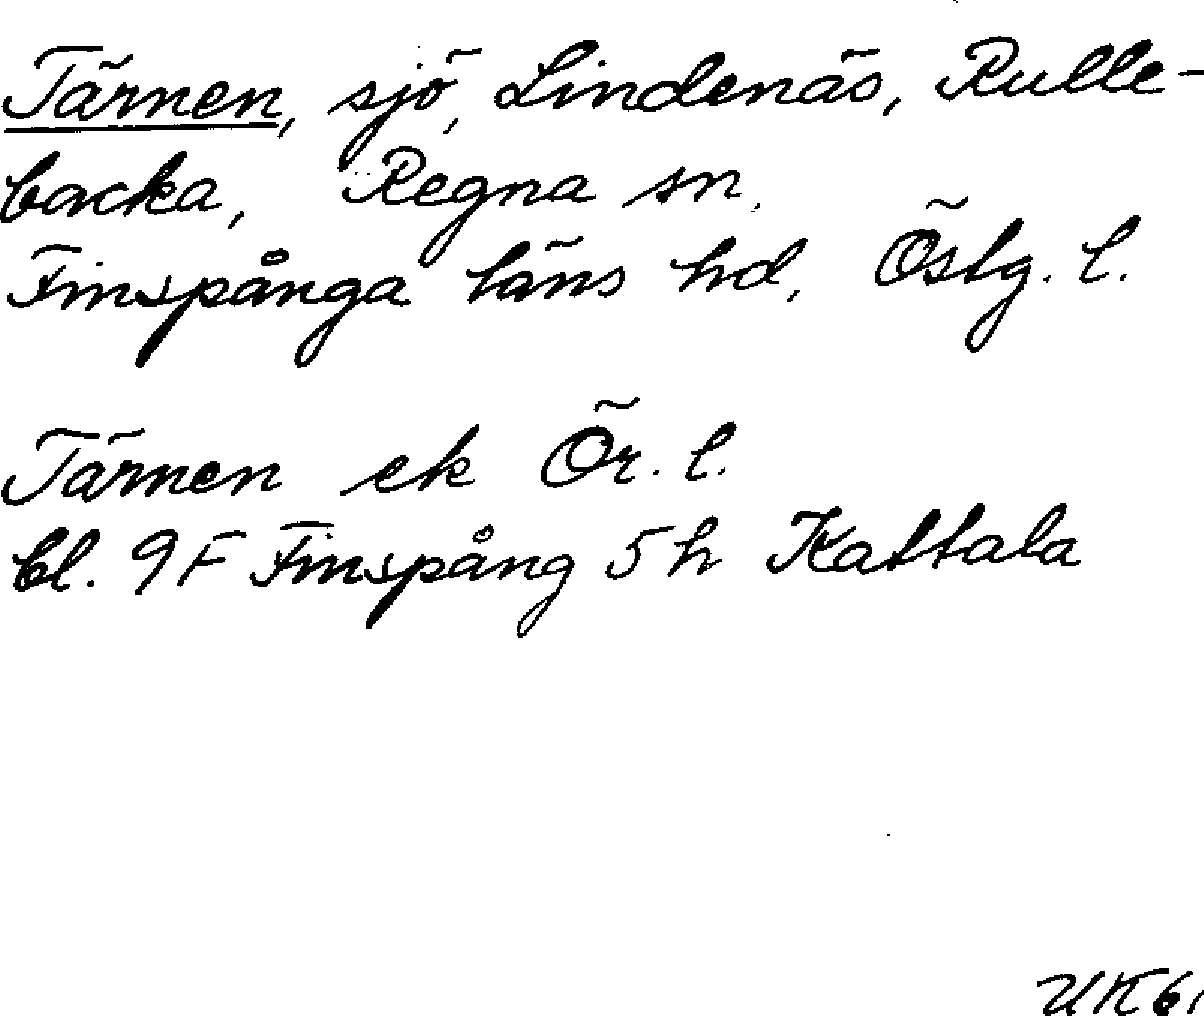 Tärnen, sjö, Lindenäs, Rulle-
backa, Regna sn.
Finspånga läns hd, Östg. l.
Tärnen ek Ör. l.
bl. 9F Finspång 5h Kattala
UK61